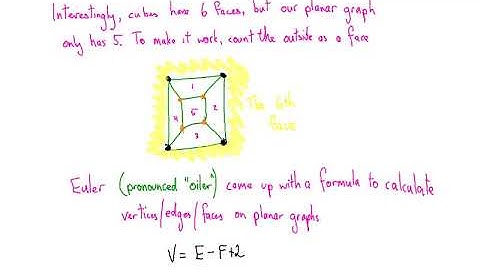 Interestingly, cubes have 6 faces, but our planar graph
only has 5. To make it work, count the outside as a face
1
4 5 2
3
The 6th
face
Euler (pronounced "oiler") came up with a formula to calculate
vertices/edges/faces on planar graphs
V = E - F + 2